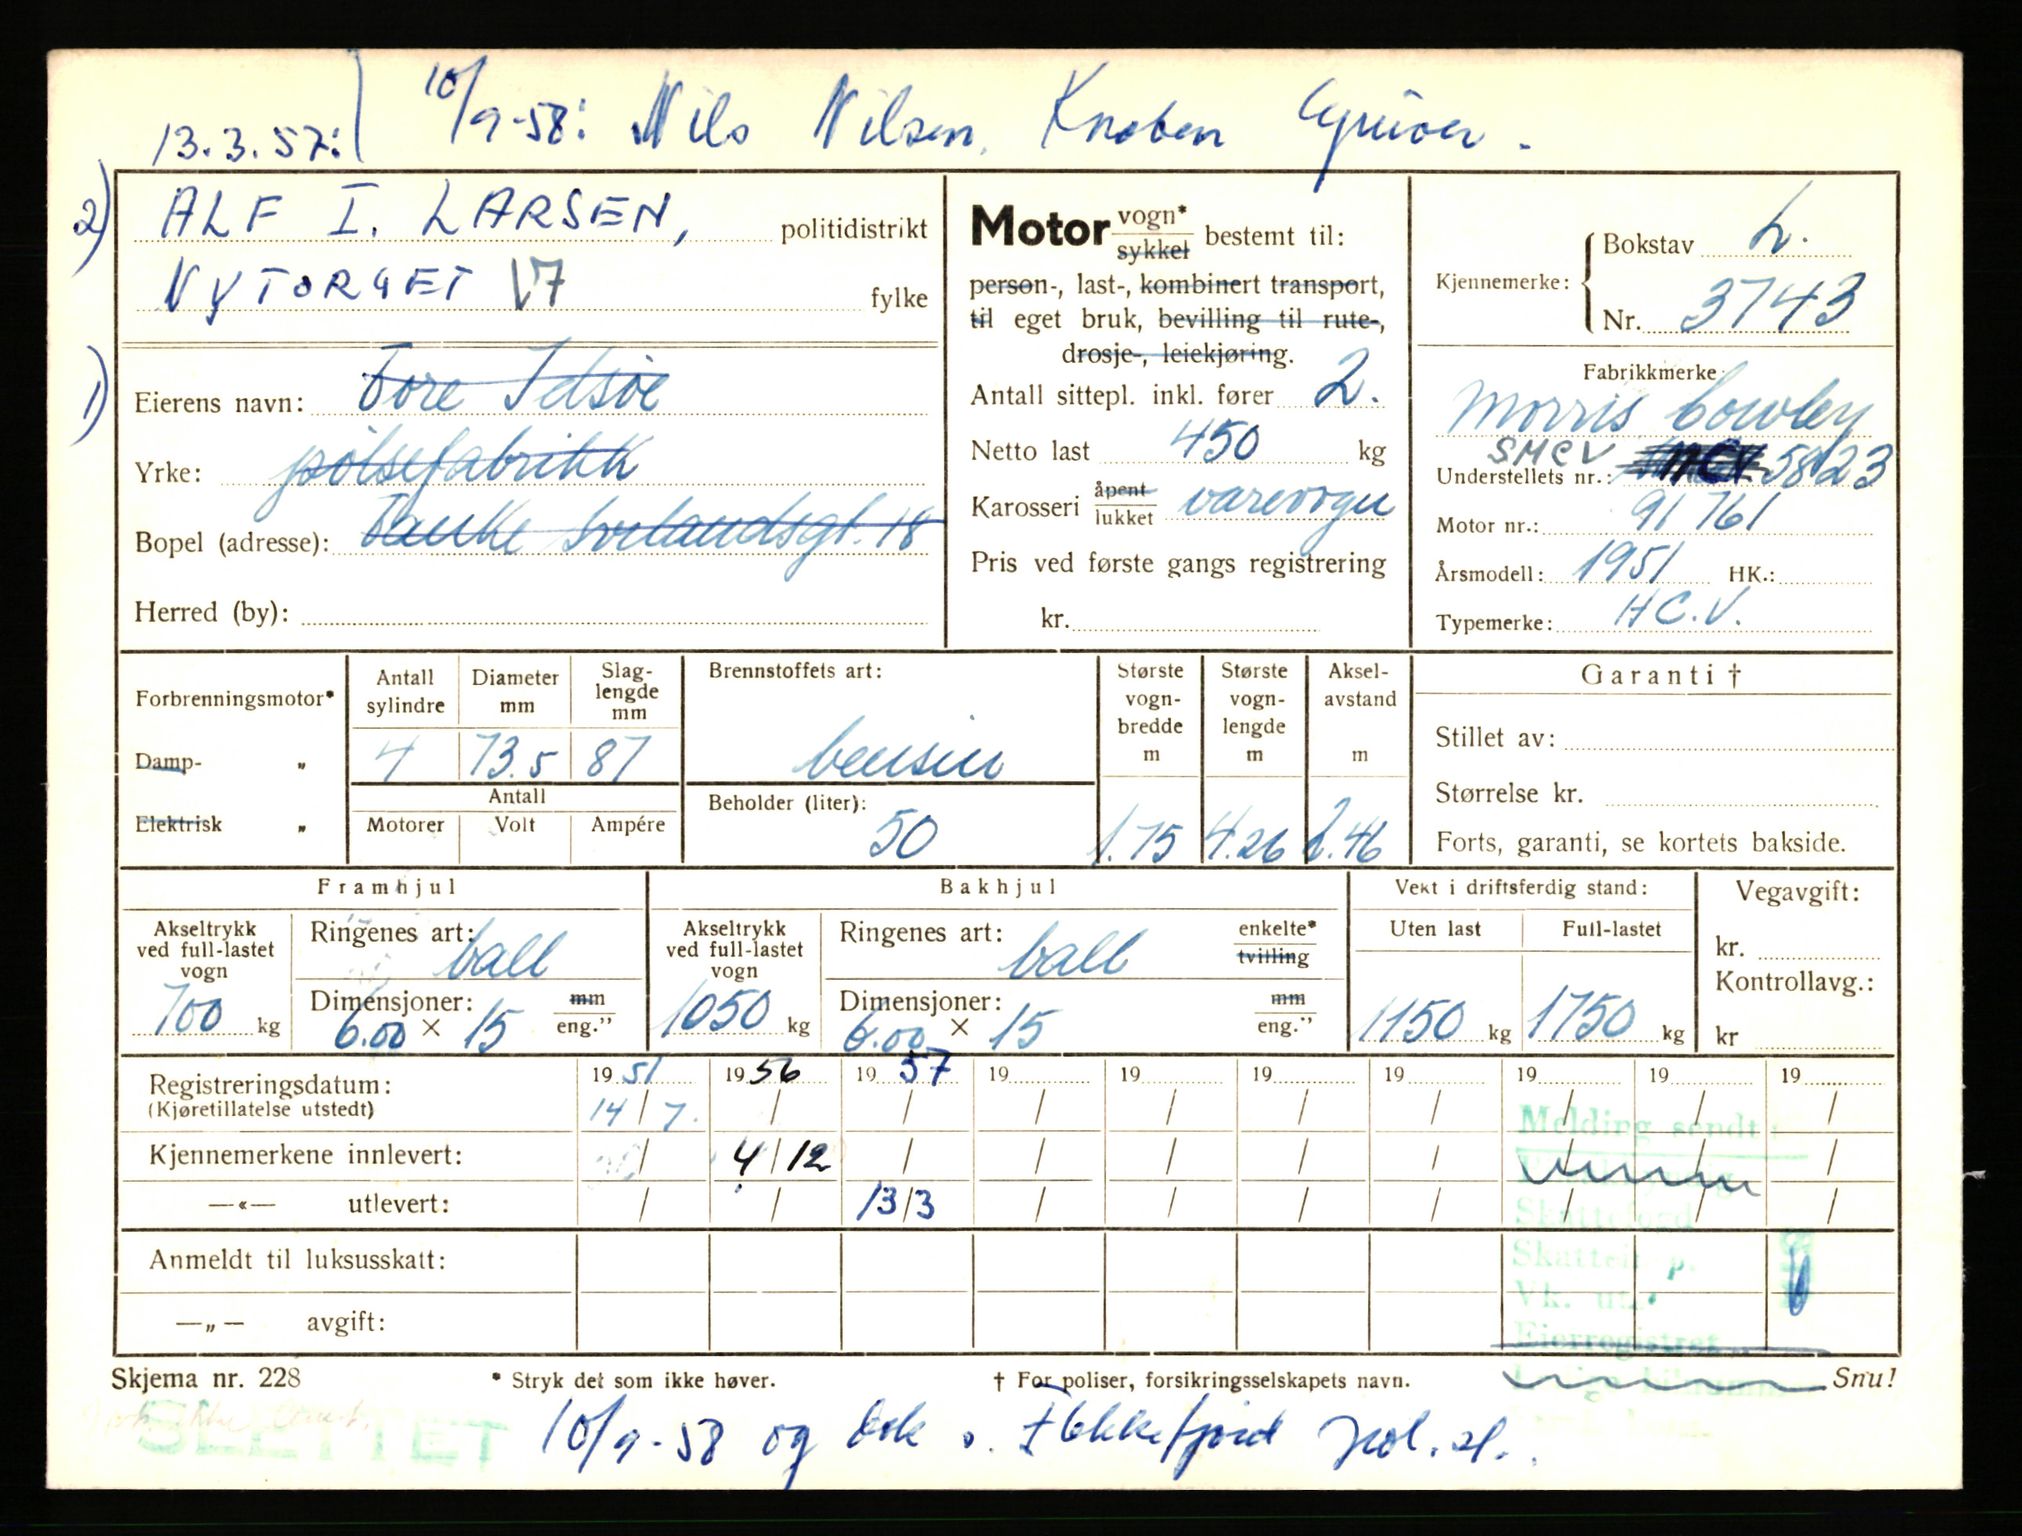 13.3.57: 10/9-58: Nils Nilsen, Knaben Gruver.
2) ALF I. LARSEN, politidistrikt
NYTORGET 17 fylke
1) Eierens navn: Tore Idsöe
Yrke: pölsefabrikk
Bopel (adresse): Tanke Svilandsgt. 18
Herred (by):
Motor vogn* sykkel bestemt til:
person-, last-, kombinert transport,
til eget bruk, bevilling til rute-,
drosje-, leiekjøring.
Antall sittepl. inkl. fører 2.
Netto last 450 kg
Karosseri åpent lukket varevogn
Pris ved første gangs registrering
kr.
Kjennemerke: Bokstav L.
Nr. 3743
Fabrikkmerke:
Morris Cowley
SMCV
Understellets nr.: 5823
Motor nr.: 91761
Årsmodell: 1951 HK.:
Typemerke: H C.V.
Forbrenningsmotor*
Damp- „
Elektrisk „
Antall sylindre
Diameter mm
Slag-lengde mm
4 73.5 87
Antall
Motorer Volt Ampére
Brennstoffets art:
bensin
Beholder (liter):
50
Største vogn-bredde m
1.75
Største vogn-lengde m
4.26
Aksel-avstand m
2.46
Garanti †
Stillet av:
Størrelse kr.
Forts, garanti, se kortets bakside.
Framhjul
Akseltrykk ved full-lastet vogn
700 kg
Ringenes art: ball
Dimensjoner: mm eng.”
6.00 × 15
Bakhjul
Akseltrykk ved full-lastet vogn
1050 kg
Ringenes art: ball enkelte* tvilling
Dimensjoner: mm eng.”
6.00 × 15
Vekt i driftsferdig stand:
Uten last Full-lastet
1150 kg 1750 kg
Vegavgift:
kr.
Kontrollavg.:
kr
Registreringsdatum: 19 51 19 56 19 57 19 19 19 19 19 19 19
(Kjøretillatelse utstedt) 14/7. / / / / / / / / /
Kjennemerkene innlevert: / 4/12 / / / / / / / /
—«— utlevert: / / 13/3 / / / / / / /
Anmeldt til luksusskatt:
—„— avgift:
Melding sendt
Skattefogd
Vk. ut.
Eierregistret
Skjema nr. 228 * Stryk det som ikke høver. † For poliser, forsikringsselskapets navn. Snu!
SLETTET
10/9-58 og dok s. Flekkefjord pol.st.